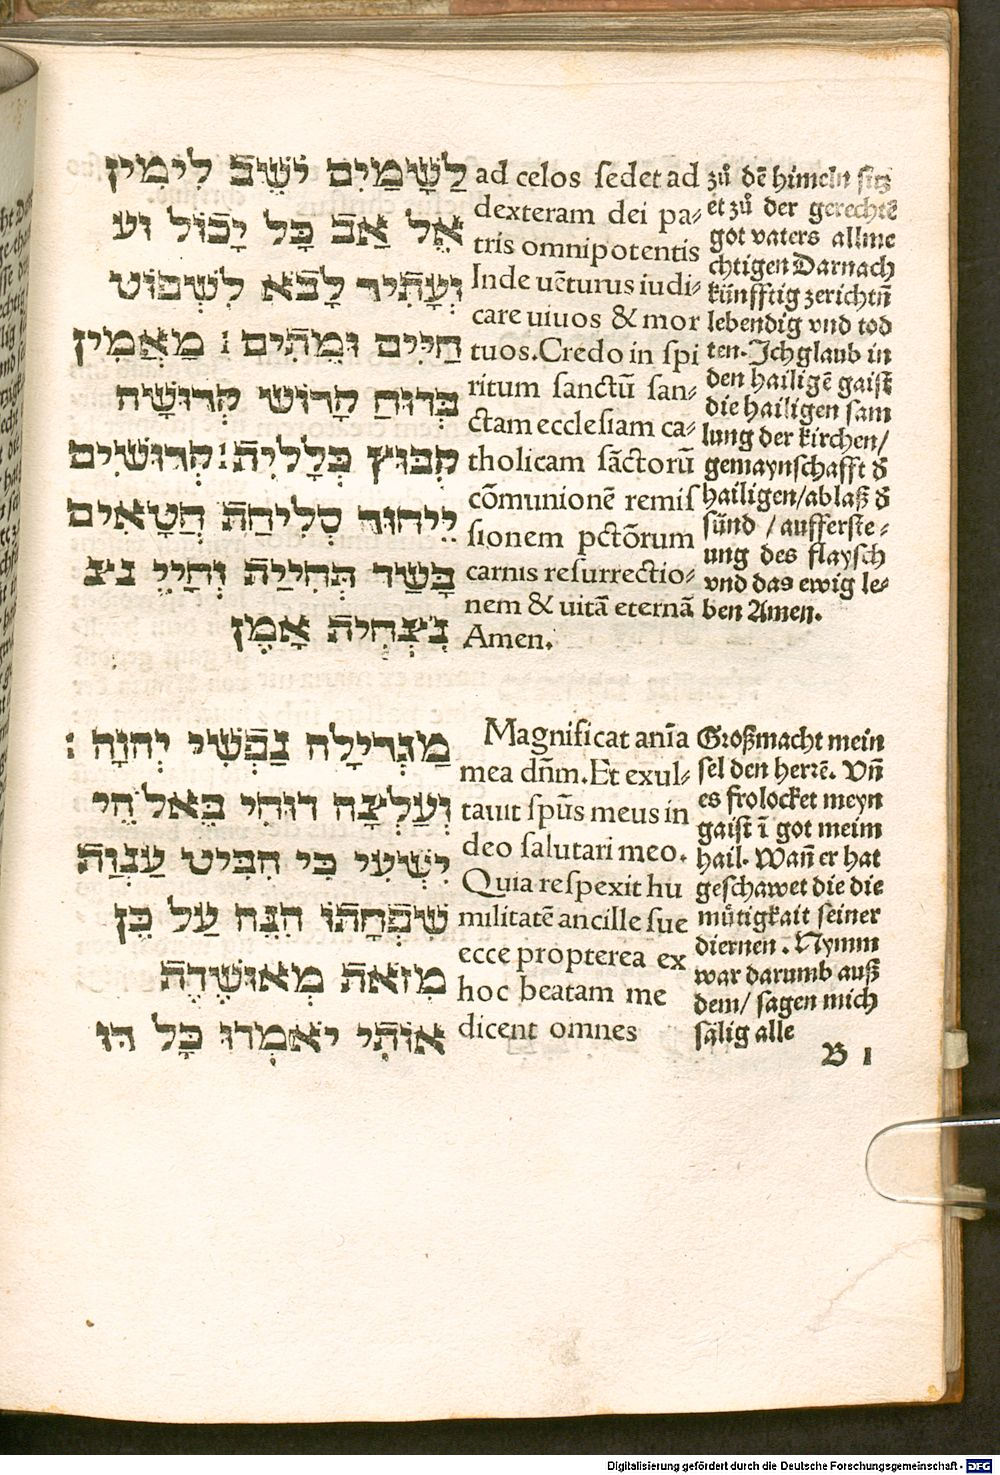 לַשָּׁמַיִם יֹשֵׁב לִימִין
אֶל אַב כָּל יָכוֹל וע
וְעָתִיר לָבֹא לִשְׁפּוֹט
חַיִּים וּמֵתִים : מַאֲמִין
בְּרוּחַ קָדוֹשׁ קְדוֹשָׁה
קִבּוּץ כְּלָלִיה : קְדוֹשִׁים
יִיחוּד סְלִיחַת חֲטָאִים
בָּשַׂר תְּחִיַּת וְחַיֵּי נצ
נִצְחִית אָמֵן
ad celos sedet ad
dexteram dei pa⸗
tris omnipotentis
Inde uēturus iudi⸗
care uiuos & mor
tuos. Credo in spi
ritum sanctū san⸗
ctam ecclesiam ca⸗
tholicam sāctorū
cōmunionē remis
sionem pctōrum
carnis resurrectio⸗
nem & uitā eternā
Amen.
zů dē himeln sitz
et zů der gerechtē
got vaters allme
chtigen Darnach
künfftig zerichtñ
lebendig vnd tod
ten. Ich glaub in
den hailigē gaist
die hailigen sam
lung der kirchen/
gemaynschafft d̕
hailigen/ablaß d̕
sünd / aufferste⸗
ung des flaysch
vnd das ewig le⸗
ben Amen.
מַגְדִילָה נַפְשִׁי יְהוָה :
וְעַלְצָה רוּחִי בֶּאֱלֹהֵי
יִשְׁעִי כִּי הִבִּיט עַנְוַת
שִׁפְחָתוֹ הִנֵּה עַל כֵּן
מִזֹאת מְאוּשֶׁרֶת
אוֹתִי יֹאמְרוּ כָּל דּוֹ
Magnificat anīa
mea dñm. Et exul⸗
tauit spūs meus in
deo salutari meo.
Quia respexit hu
militatē ancille sue
ecce propterea ex
hoc beatam me
dicent omnes
Großmacht mein
sel den herrē. Vñ
es frolocket meyn
gaist ī got meim
hail. Wañ er hat
geschawet die die
mütigkait seiner
diernen . Nymm
war darumb auß
dem/ sagen mich
sälig alle
B 1
Digitalisierung gefördert durch die Deutsche Forschungsgemeinschaft - DFG